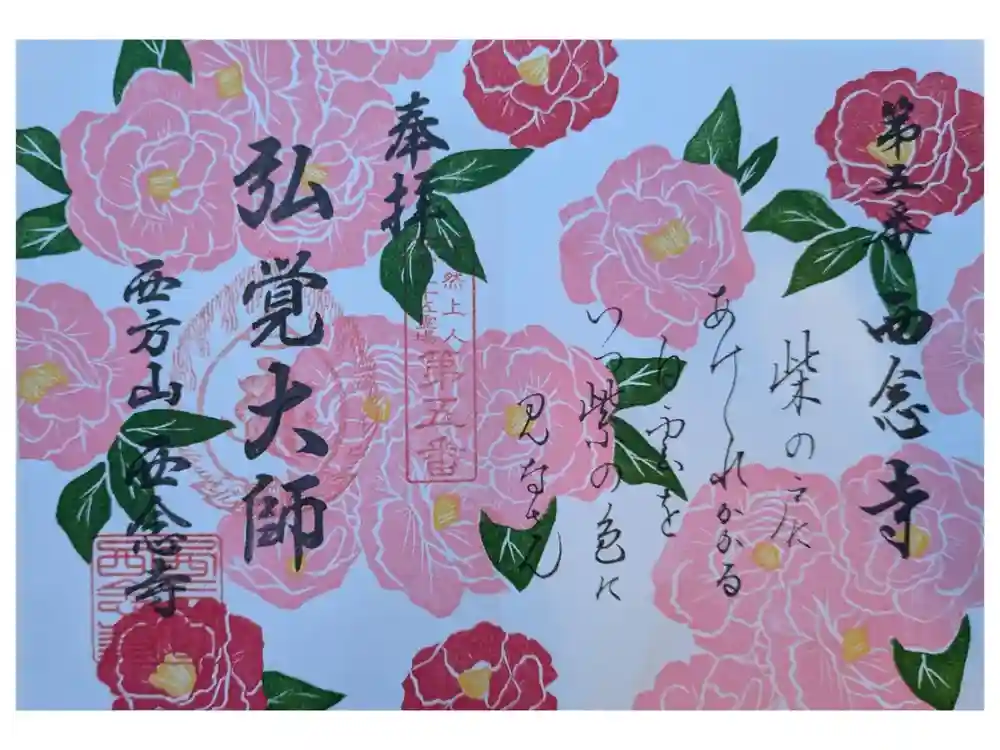 第五番 西念寺
柴の戸に
あけくれかかる
白雲を
いつ紫の色に
見なさん
奉拝
然上人
第五番
弘覚大師
西方山 西念寺